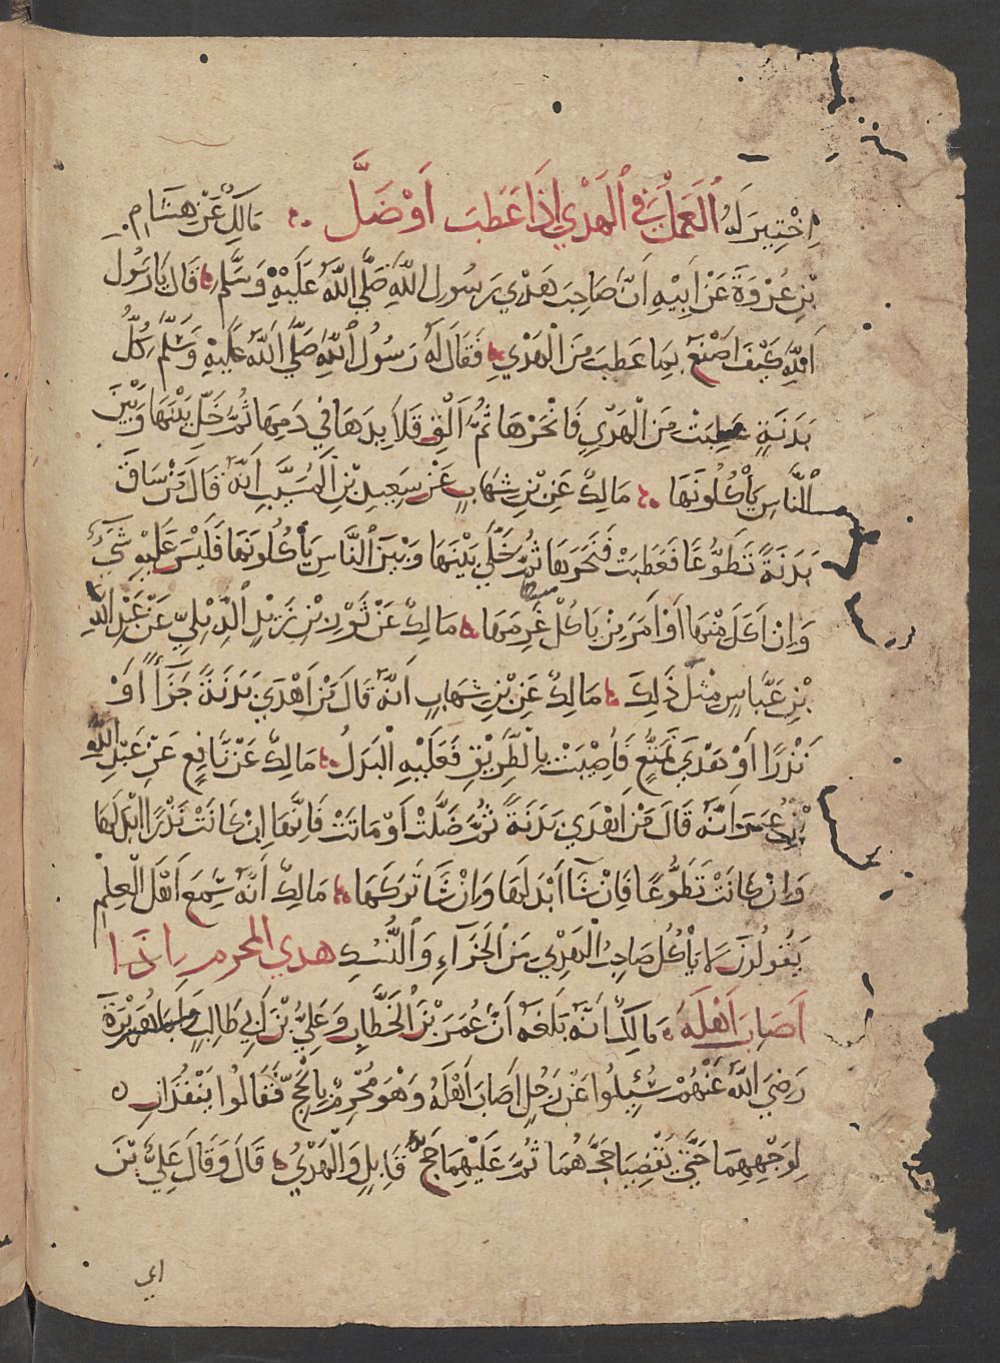 اِخْتِيرَ لَهُ اَلعَمَلُ فِي اَلهَدْيِ اِذَا عَطَبَ اَوْ ضَلَّ مَالِكٌ عَنْ هِشَامِ
بْنِ عُرْوَةَ عَنْ اَبِيْهِ اَنَّ صَاحِبَ هَدْيِ رَسُولِ اللَّهِ صَلَّي اَللَّهُ عَلَيْهِ وَسَلَّمَ قَالَ يَا رَسُولَ
اَللَّهِ كَيْفَ اَصْنَعُ بِمَا عَطَبَ مِنَ اَلْهَدْيِ فَقَالَ لَهُ رَسُولُ اَللَّهِ صَلَّي اَللَّهُ عَلَيْهِ وَسَلَّمَ كُلُّ
بَدَنَةٍ عَطِبَتْ مِنَ الْهَدْيِ فَانْحَرْهَا ثُمَّ اَلْقِ قَلَايِدَهَا فِي دَمِهَا ثُمَّ خَلِّ بَيْنَهَا وَبَيْنَ
اَلنَّاسِ يَأْكُلُونَهَا مَالِكٌ عَنِ بْنِ شِهَابٍ عَنْ سَعِيدِ بْنِ اَلمُسَيَّبِ اَنَّهُ قَالَ مَنْ سَاقَ
بَدَنَةً تَطَوُّعًا فَعَطَبَتْ فَنَحَرَهَا ثُمَّ خَلَّي بَيْنَهَا وَبَيْنَ اَلنَّاسِ يَأْكُلُونَهَا فَلَيْسَ عَلَيْهِ شَيْءٌ
وَاِنْ اَكَلَ مِنْهَا اَوْ اَمَرَ مَنْ يَاكُلُ غَرِمَهَا مَالِكٌ عَنْ ثَوْرِ بْنِ زَيْدٍ اَلدِّيْلِيِّ عَنْ عَبْدِ اللَّهِ
بْنِ عَبَّاسٍ مِثْلَ ذَلِكَ مَالِكٌ عَنِ بْنِ شِهَابٍ اَنَّهُ قَالَ مَنْ اَهْدَي بَدَنَةً جَزَآءً اَوْ
نَذْرًا اَوْ هَدْيَ تَمَتُّعٍ فَاُصِيْبَتْ بِالطَّرِيْقِ فَعَلَيْهِ اَلْبَدَلُ مَالِكٌ عَنْ نَّافِعٍ عَنْ عَبْدِ اللَّهِ
بْنِ عُمَرَ اَنَّهُ قَالَ مَنْ اَهْدَي بَدَنَةً ثُمَّ ضَلَّتْ اَوْ مَاتَتْ فَاِنَّهَا اِنْ كَانَتْ نَذْرًا اَبْدَلَهَا
وَاِنْ كَانَتْ تَطَوُّعًا فَاِنْ شَآ اَبْدَلَهَا وَاِنْ شَآ تَرَكَهَا مَالِكٌ اَنَّهُ سَمِعَ اَهْلَ الْعِلْمِ
يَقُولُونَ لَا يَأْكُلُ صَاحِبُ الْهَدْيِ مِنَ اَلجَزَآءِ وَالنُّسُكِ هدي المحرم اذا
اَصَابَ اَهْلَهُ مَالِكٌ اَنَّهُ بَلَغَهُ اَنَّ عُمَرَ بْنَ اَلخَطَّابِ وَعَلِيَّ بْنَ اَبِي طَالِبٍ وَاَبَا هُرَيْرَةَ
رَضِيَ اَللَّهُ عَنْهُمْ سُئِلُوا عَنْ رَجُلٍ اَصَابَ اَهْلَهُ وَهْوَ مُحْرِمٌ بِالْحَجِّ فَقَالُوا يَنْفُذَانِ
لِوَجْهِهِمَا حَتَّي يَقْضِيَا حَجَّهُمَا ثُمَّ عَلَيْهِمَا حَجُّ قَابِلٍ وَالْهَدْيُ قَالَ وَقَالَ عَلِيُّ بْنُ
ابي